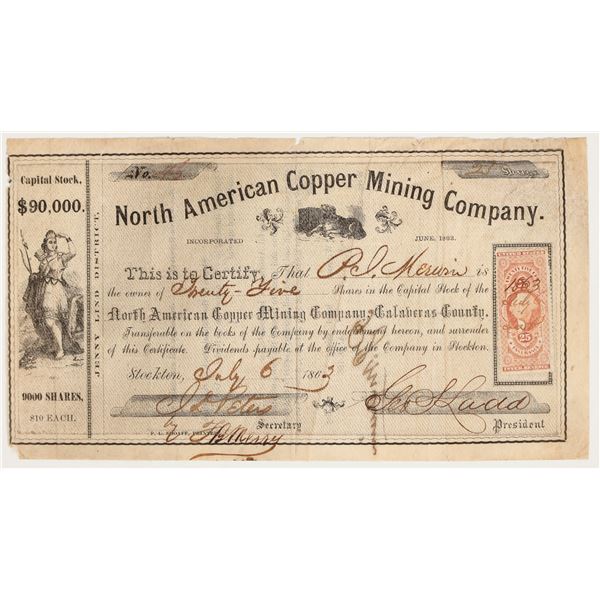 Capital Stock.
$90,000.
9000 SHARES,
$10 EACH.
JENNY LIND DISTRICT,
No.
25 Shares
North American Copper Mining Company.
INCORPORATED JUNE, 1863.
This is to Certify, That P. S. Merwin is
the owner of Twenty-Five Shares in the Capital Stock of the
North American Copper Mining Company, Calaveras County.
Transferable on the books of the Company by endorsement hereon, and surrender
of this Certificate. Dividends payable at the office of the Company in Stockton.
Stockton, July 6 1863
Secretary
President
UNITED STATES
1863
25
INTER. REVENUE